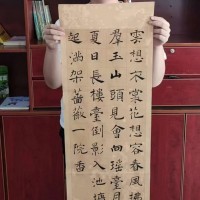 雲想衣裳花想容春風拂
羣玉山頭見會向瑤臺月
夏日長樓臺倒影入池塘
起滿架薔薇一院香